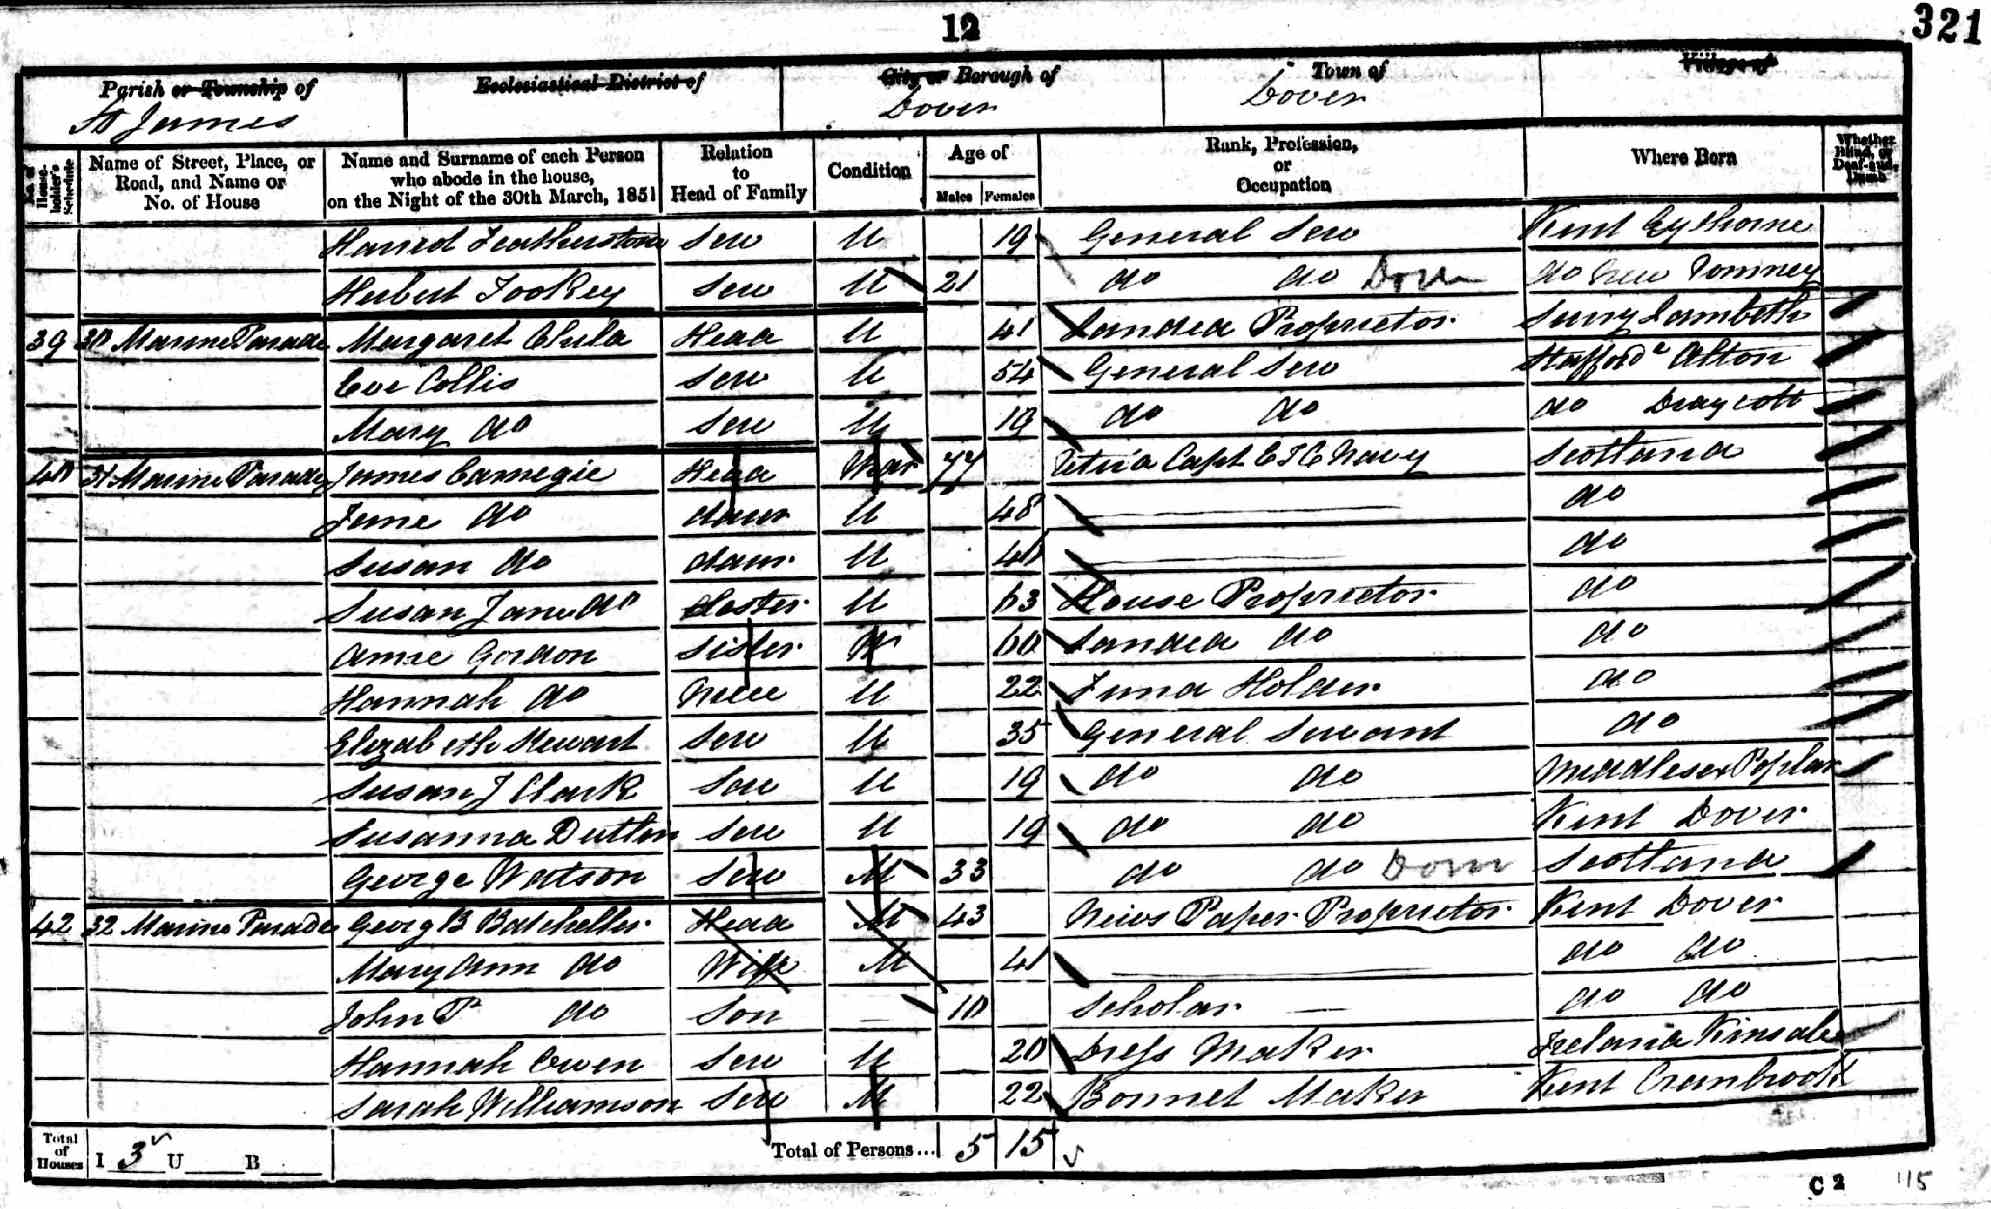 12
321
Parish or Township of
St James
Ecclesiastical District of
City or Borough of
Dover
Town of
Dover
Village of
No. of House-holder's Schedule
Name of Street, Place, or Road, and Name or No. of House
Name and Surname of each Person who abode in the house, on the Night of the 30th March, 1851
Relation to Head of Family
Condition
Age of
Males Females
Rank, Profession, or Occupation
Where Born
Whether Blind, or Deaf-and-Dumb
Harried Featherstone Serv U 19 General Serv Kent Eythorne
Herbert Tookey Serv U 21 do do Dom do New Romney
39 30 Marine Parade Margaret Head U 41 Landed Proprietor Surry Lambeth
Eve Collis Serv U 54 General Serv Stafford Alton
Mary do Serv U 19 do do do Draycott
40 31 Marine Parade James Carnegie Head Widr 77 Capt Navy Scotland
Jane do daur U 48 do
Susan do daur U 40 do
Susan Jane do Sister U 63 House Proprietor do
Amie Gordon Sister W 60 Landed do do
Hannah do Niece U 22 Fund Holder do
Elizabeth Stewart Serv U 35 General Servant do
Susan J Clark Serv U 19 do do Middlesex Poplar
Susanna Dutton Serv U 19 do do Kent Dover
George Watson Serv M 33 do do Dom Scotland
42 32 Marine Parade Georg B Batcheller Head M 43 News Paper Proprietor Kent Dover
Mary Ann do Wife M 41 do do
John P do Son — 10 Scholar — do do
Hannah Owen Serv U 20 Dress Maker Ireland Kinsale
Sarah Williamson Serv M 22 Bonnet Maker Kent Cranbrook
Total of Houses I 3 U B Total of Persons... 5 15
C 2 115